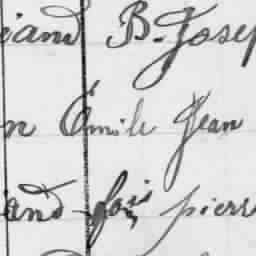 iand B. Josep
n Émile Jean
iand fois pierr